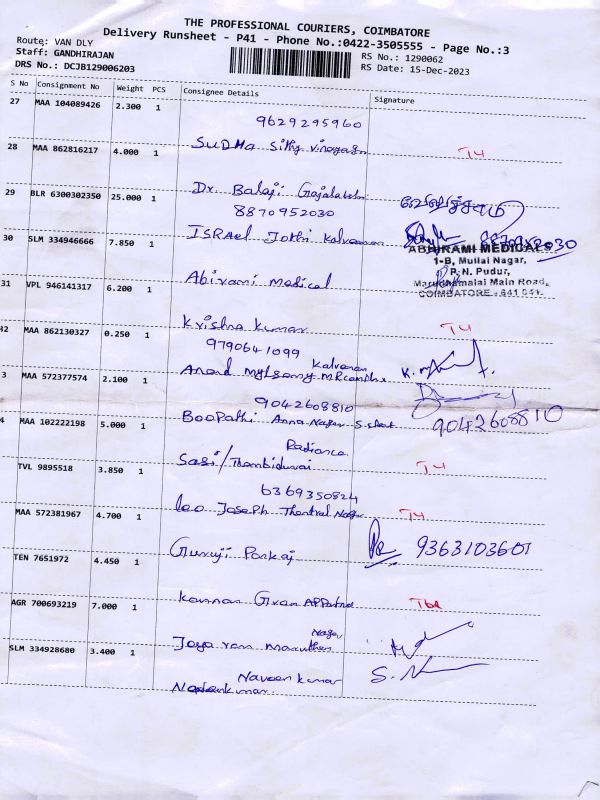 THE PROFESSIONAL COURIERS, COIMBATORE
Delivery Runsheet - P41 - Phone No.:0422-3505555 - Page No.:3
Route: VAN DLY
Staff: GANDHIRAJAN
DRS No.: DCJB129006203
RS No.: 1290062
RS Date: 15-Dec-2023
S No Consignment No Weight PCS Consignee Details Signature
27 MAA 104089426 2.300 1
9629295960
Sudha
28 MAA 862816217 4.000 1
29 BLR 6300302350 25.000 1 Dr. Balaji
8870952030
30 SLM 334946666 7.850 1 ISRAel Jothi 8870952030
ABHIRAMI MEDICALS
1-B, Mullai Nagar,
P. N. Pudur,
Marudhamalai Main Road,
COIMBATORE - 641 041.
31 VPL 946141317 6.200 1 Abirami Medical
Krishna Kumar
42 MAA 862130327 0.250 1
9790641099
Kalvanan
Anand
3 MAA 572377574 2.100 1
9042608810
Boopathi Anna Nagar 9042608810
4 MAA 102222198 5.000 1
Radiance
Sasi/Thambidurai
TVL 9895518 3.850 1
6369350824
Leo Joseph Thentral Nagar
MAA 572381967 4.700 1
Guruji Pankaj 9363103601
TEN 7651972 4.450 1
Kannan
AGR 700693219 7.000 1
Nagar
Jaya ram
SLM 334928680 3.400 1
Naveen kumar